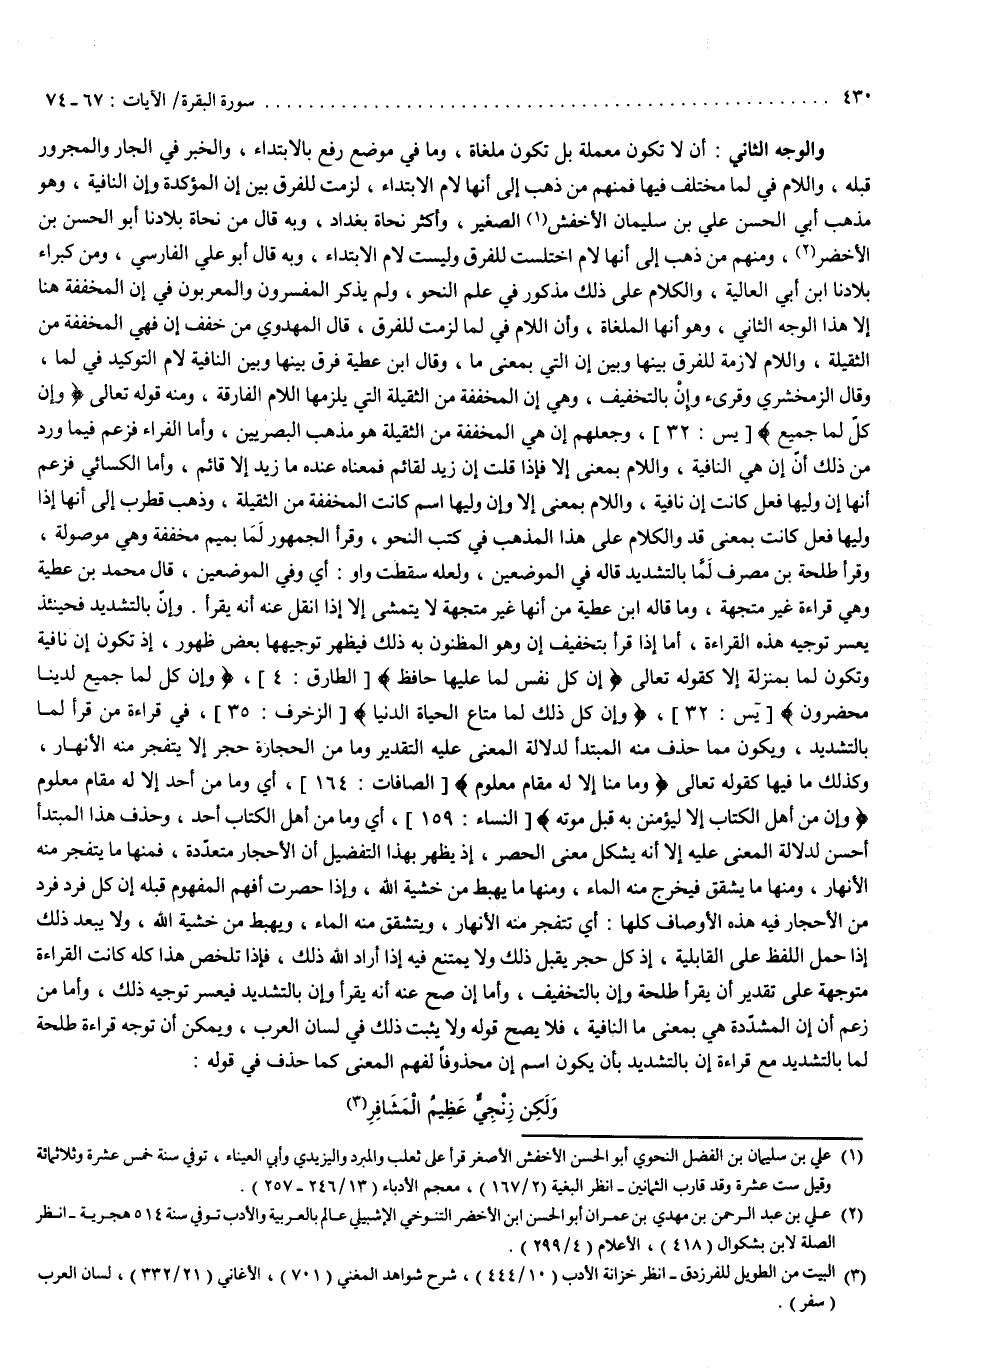 ٤٣٠ ........................................ سورة البقرة/ الآيات : ٦٧ـ ٧٤
والوجه الثاني : أن لا تكون معملة بل تكون ملغاة ، وما في موضع رفع بالابتداء ، والخبر في الجار والمجرور
قبله ، واللام في لما مختلف فيها فمنهم من ذهب إلى أنها لام الابتداء ، لزمت للفرق بين إن المؤكدة وإن النافية ، وهو
مذهب أبي الحسن علي بن سليمان الأخفش(١) الصغير ، وأكثر نحاة بغداد ، وبه قال من نحاة بلادنا أبو الحسن بن
الأخضر(٢) ، ومنهم من ذهب إلى أنها لام اختلست للفرق وليست لام الابتداء ، وبه قال أبو علي الفارسي ، ومن كبراء
بلادنا ابن أبي العالية ، والكلام على ذلك مذكور في علم النحو ، ولم يذكر المفسرون والمعربون في إن المخففة هنا
إلا هذا الوجه الثاني ، وهو أنها الملغاة ، وأن اللام في لما لزمت للفرق ، قال المهدوي من خفف إن فهي المخففة من
الثقيلة ، واللام لازمة للفرق بينها وبين إن التي بمعنى ما ، وقال ابن عطية فرق بينها وبين النافية لام التوكيد في لما ،
وقال الزمخشري وقرىء وإنْ بالتخفيف ، وهي إن المخففة من الثقيلة التي يلزمها اللام الفارقة ، ومنه قوله تعالى ﴿ وإن
كلّ لما جميع ﴾ [ يس : ٣٢ ] ، وجعلهم إن هي المخففة من الثقيلة هو مذهب البصريين ، وأما الفراء فزعم فيما ورد
من ذلك أنّ إن هي النافية ، واللام بمعنى إلا فإذا قلت إن زيد لقائم فمعناه عنده ما زيد إلا قائم ، وأما الكسائي فزعم
أنها إن وليها فعل كانت إن نافية ، واللام بمعنى إلا وإن وليها اسم كانت المخففة من الثقيلة ، وذهب قطرب إلى أنها إذا
وليها فعل كانت بمعنى قد والكلام على هذا المذهب في كتب النحو ، وقرأ الجمهور لَمَا بميم مخففة وهي موصولة ،
وقرأ طلحة بن مصرف لَمَّا بالتشديد قاله في الموضعين ، ولعله سقطت واو : أي وفي الموضعين ، قال محمد بن عطية
وهي قراءة غير متجهة ، وما قاله ابن عطية من أنها غير متجهة لا يتمشى إلا إذا انقل عنه أنه يقرأ . وإنّ بالتشديد فحينئذ
يعسر توجيه هذه القراءة ، أما إذا قرأ بتخفيف إن وهو المظنون به ذلك فيظهر توجيهها بعض ظهور ، إذ تكون إن نافية
وتكون لما بمنزلة إلا كقوله تعالى ﴿ إن كل نفس لما عليها حافظ ﴾ [ الطارق : ٤ ] ، ﴿ وإن كل لما جميع لدينا
محضرون ﴾ [ يَس : ٣٢ ] ، ﴿ وإن كل ذلك لما متاع الحياة الدنيا ﴾ [ الزخرف : ٣٥ ] ، في قراءة من قرأ لما
بالتشديد ، ويكون مما حذف منه المبتدأ لدلالة المعنى عليه التقدير وما من الحجارة حجر إلا يتفجر منه الأنهار ،
وكذلك ما فيها كقوله تعالى ﴿ وما منا إلا له مقام معلوم ﴾ [ الصافات : ١٦٤ ] ، أي وما من أحد إلا له مقام معلوم
﴿ وإن من أهل الكتاب إلا ليؤمنن به قبل موته ﴾ [ النساء : ١٥٩ ] ، أي وما من أهل الكتاب أحد ، وحذف هذا المبتدأ
أحسن لدلالة المعنى عليه إلا أنه يشكل معنى الحصر ، إذ يظهر بهذا التفضيل أن الأحجار متعدّدة ، فمنها ما يتفجر منه
الأنهار ، ومنها ما يشقق فيخرج منه الماء ، ومنها ما يهبط من خشية الله ، وإذا حصرت أفهم المفهوم قبله إن كل فرد فرد
من الأحجار فيه هذه الأوصاف كلها : أي تتفجر منه الأنهار ، ويتشقق منه الماء ، ويهبط من خشية الله ، ولا يبعد ذلك
إذا حمل اللفظ على القابلية ، إذ كل حجر يقبل ذلك ولا يمتنع فيه إذا أراد الله ذلك ، فإذا تلخص هذا كله كانت القراءة
متوجهة على تقدير أن يقرأ طلحة وإن بالتخفيف ، وأما إن صح عنه أنه يقرأ وإن بالتشديد فيعسر توجيه ذلك ، وأما من
زعم أن إن المشدّدة هي بمعنى ما النافية ، فلا يصح قوله ولا يثبت ذلك في لسان العرب ، ويمكن أن توجه قراءة طلحة
لما بالتشديد مع قراءة إن بالتشديد بأن يكون اسم إن محذوفاً لفهم المعنى كما حذف في قوله :
وَلَكِن زِنْجِيٌّ عَظِيمُ الْمَشَافِرِ(٣)
(١) علي بن سليمان بن الفضل النحوي أبو الحسن الأخفش الأصغر قرأ على ثعلب والمبرد واليزيدي وأبي العيناء ، توفي سنة خمس عشرة وثلاثمائة
وقيل ست عشرة وقد قارب الثمانين ـ انظر البغية (١٦٧/٢ ) ، معجم الأدباء (٢٤٦/١٣ ـ ٢٥٧ ) .
(٢) علي بن عبد الرحمن بن مهدي بن عمران أبو الحسن ابن الأخضر التنوخي الإشبيلي عالم بالعربية والأدب توفي سنة ٥١٤ هجرية ـ انظر
الصلة لابن بشكوال ( ٤١٨ ) ، الأعلام ( ٢٩٩/٤ ) .
(٣) البيت من الطويل للفرزدق ـ انظر خزانة الأدب ( ٤٤٤/١٠ ) ، شرح شواهد المغني ( ٧٠١ ) ، الأغاني ( ٣٣٢/٢١ ) ، لسان العرب
( سفر ) .